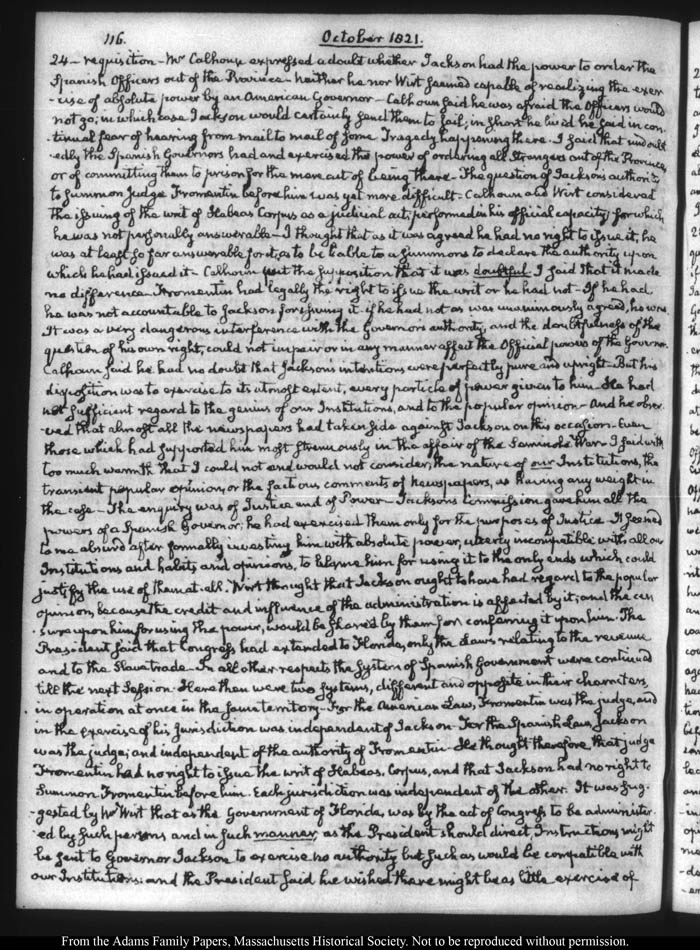 116.
October 1821.
24 — requisition — Mr Calhoun expressed a doubt whether Jackson had the power to order the
Spanish Officers out of the Province — Neither he nor Wirt seemed capable of realizing the exer
-cise of absolute power by an American Governor — Calhoun said he was afraid the Officers would
not go; in which case Jackson would certainly send them to jail; in short he lived he said in con-
tinual fear of hearing from mail to mail of some Tragedy happening there — I said that undoubt
-edly the Spanish Governors had and exercised the power of ordering all Strangers out of the Province,
or of committing them to prison for the mere act of being there — The question of Jackson's authority
to summon Judge Fromentin before him was yet more difficult — Calhoun and Wirt considered
the issuing of the writ of Habeas Corpus as a judicial act, performed in his official capacity, for which
he was not personally answerable — I thought that as it was agreed he had no right to issue it, he
was at least so far answerable for it, as to be liable to a summons to declare the authority upon
which he had issued it — Calhoun put the supposition that it was doubtful. I said that it made
no difference — Fromentin had legally the right to issue the writ or he had not — If he had
he was not accountable to Jackson for issuing it. if he had not as was unanimously agreed, he was.
It was a very dangerous interference with the Governor's authority, and the doubtfulness of the
question of his own right, could not impair or in any manner affect the Official powers of the Governor.
Calhoun said he had no doubt that Jackson's intentions were perfectly pure and upright — But his
disposition was to exercise to its utmost extent, every particle of power given to him. He had
not sufficient regard to the genius of our Institutions, and to the popular opinion — And he obser
-ved that almost all the newspapers had taken side against Jackson on this occasion — Even
those which had supported him most strenuously in the affair of the Seminole War — I said with
too much warmth that I could not and would not consider, the nature of our Institutions, the
transient popular opinion, or the factious comments of Newspapers, as having any weight in
the case — The enquiry was of Justice and of Power — Jackson's commission gave him all the
powers of a Spanish Governor; he had exercised them only for the purposes of Justice. It seemed
to me absurd after formally investing him with absolute power, utterly incompatible with all our
Institutions and habits and opinions, to blame him for using it to the only ends which could
justify the use of them at all. Wirt thought that Jackson ought to have had regard to the popular
opinion, because the credit and influence of the administration is affected by it; and the cen
-sure upon him for using the power, would be shared by them for conferring it upon him. The
President said that Congress had extended to Florida, only the Laws relating to the revenue
and to the Slave trade — In all other respects the System of Spanish Government were continued
till the next Session. Here then were two Systems, different and opposite in their characters,
in operation at once in the same territory — For the American Law, Fromentin was the judge, and
in the exercise of his Jurisdiction was independent of Jackson. For the Spanish Law Jackson
was the judge; and independent of the authority of Fromentin — He thought therefore that judge
Fromentin had no right to issue the writ of Habeas Corpus, and that Jackson had no right to
summon Fromentin before him. Each jurisdiction was independent of the other. It was sug-
-gested by Mr Wirt that as the Government of Florida, was by the act of Congress to be administer
-ed by such persons and in such manner, as the President should direct Instructions might
be sent to Governor Jackson to exercise no authority but such as would be compatible with
our Institutions: and the President said he wished there might be as little exercise of
From the Adams Family Papers, Massachusetts Historical Society. Not to be reproduced without permission.